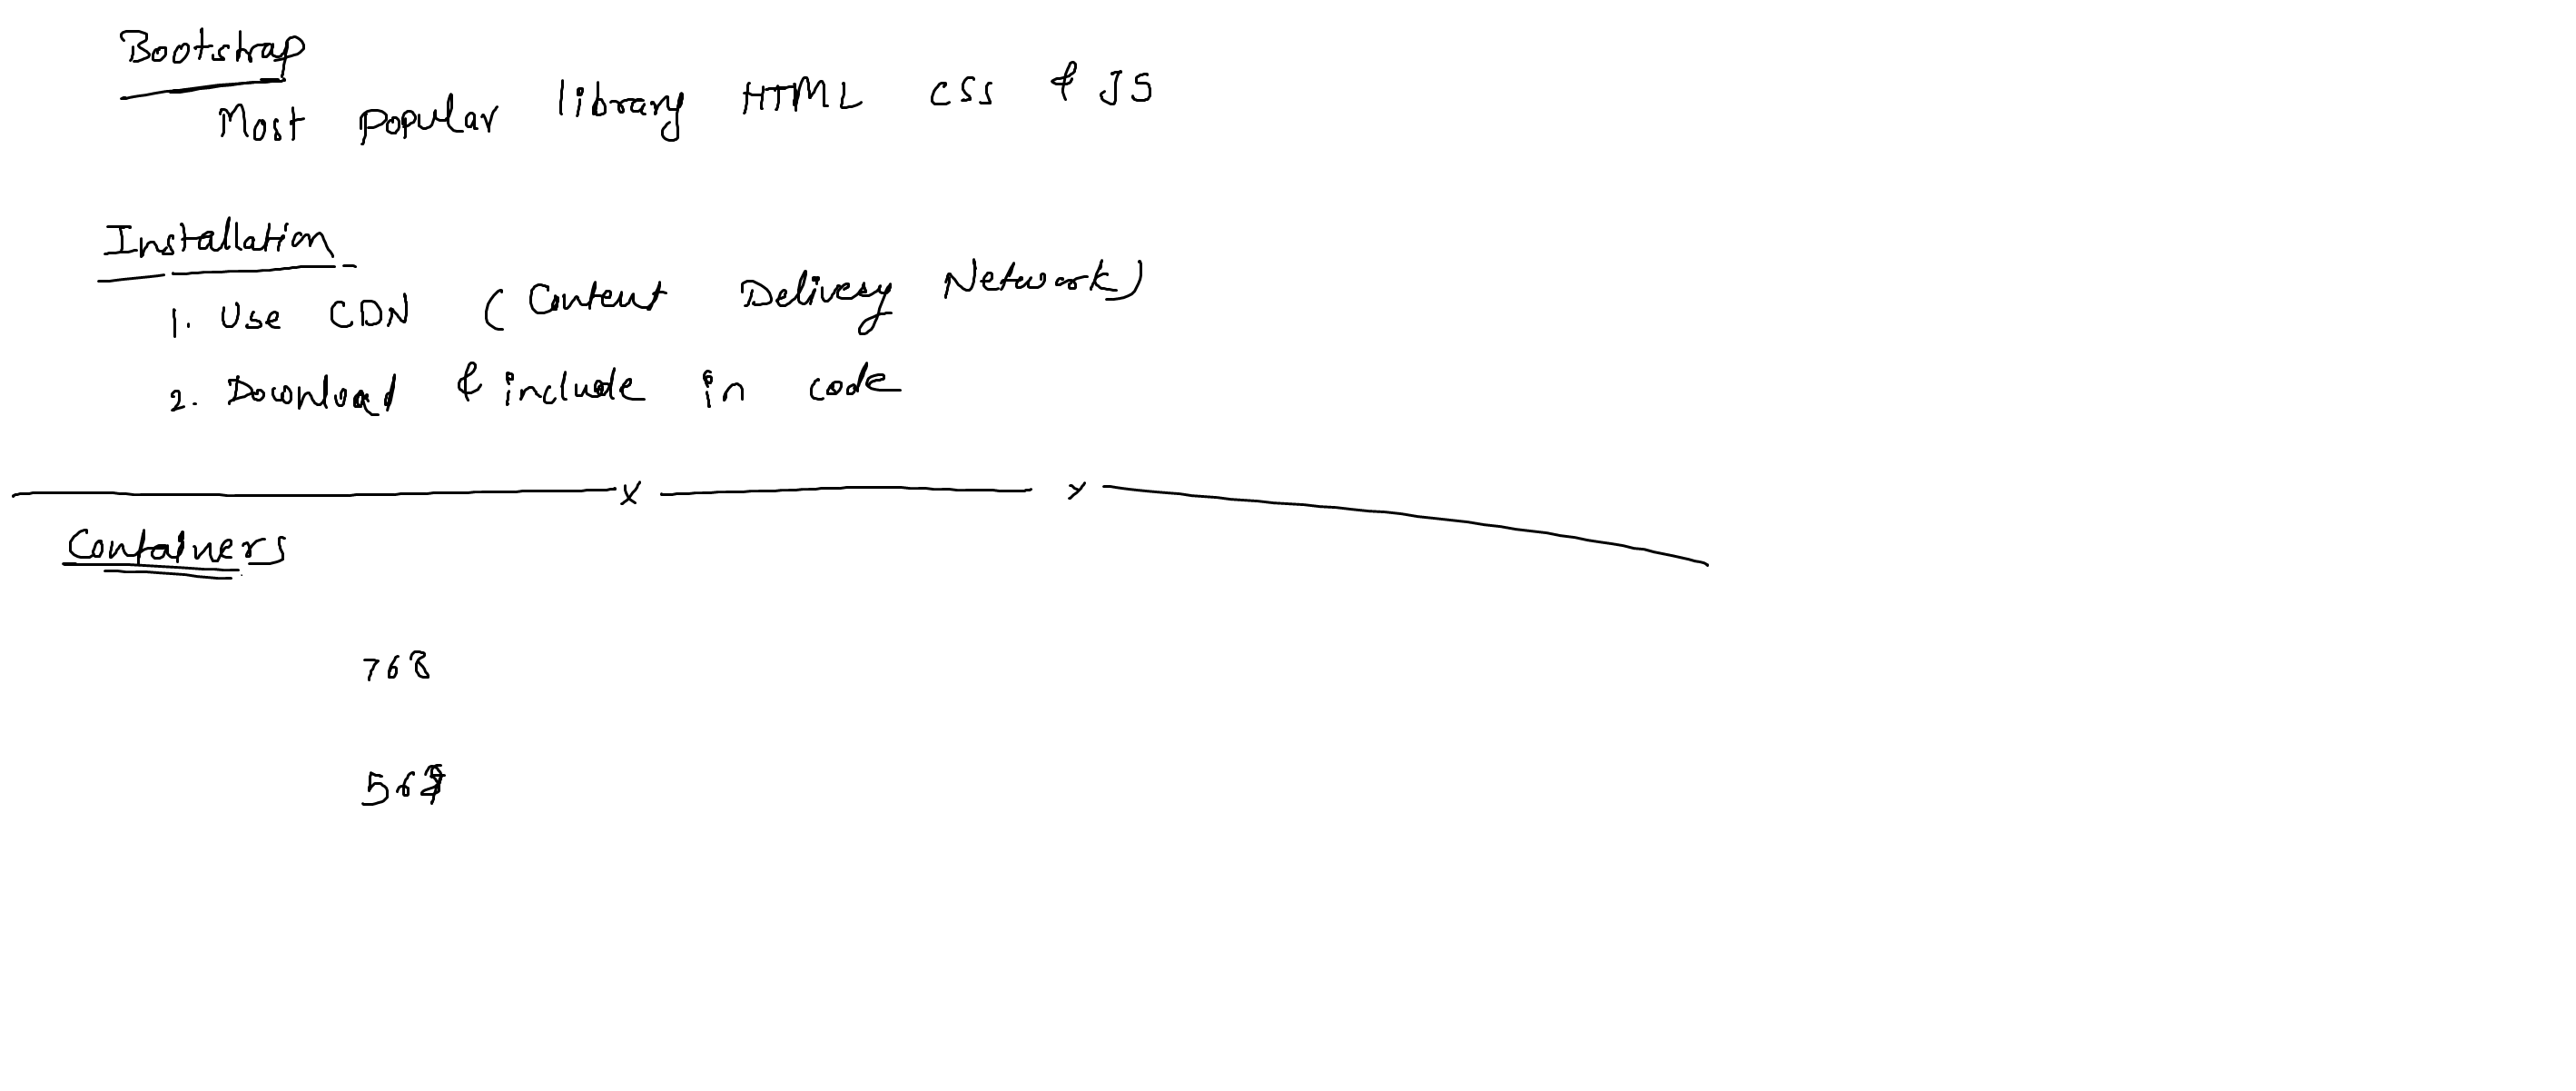 Bootstrap
Most popular library HTML CSS & JS
Installation
1. Use CDN (Content Delivery Network)
2. Download & include in code
Containers
768